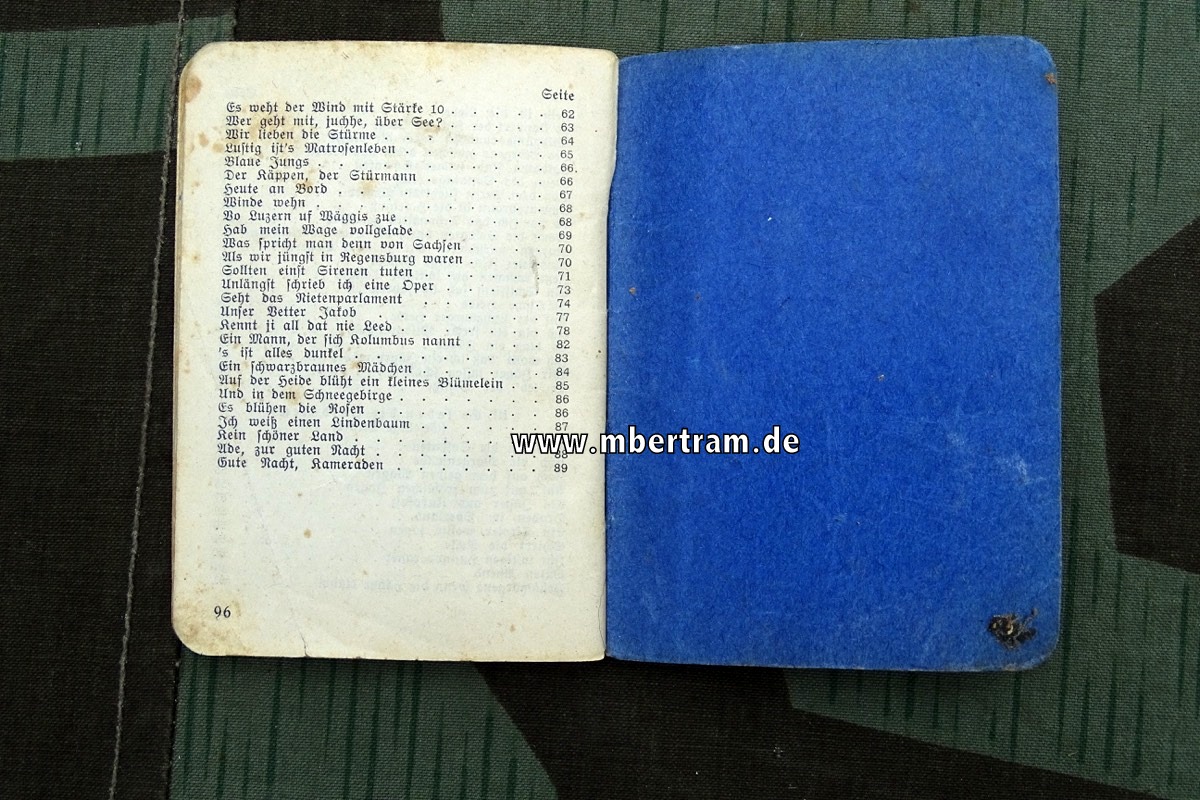 Seite
Es weht der Wind mit Stärke 10 . . . . . . 62
Wer geht mit, juchhe, über See? . . . . . . 63
Wir lieben die Stürme . . . . . . . . . 64
Lustig ist's Matrosenleben . . . . . . . . 65
Blaue Jungs . . . . . . . . . . . 66.
Der Käppen, der Stürmann . . . . . . . 66
Heute an Bord . . . . . . . . . . 67
Winde wehn . . . . . . . . . . . 68
Vo Luzern uf Wäggis zue . . . . . . . . 68
Hab mein Wage vollgelade . . . . . . . 69
Was spricht man denn von Sachsen . . . . . 70
Als wir jüngst in Regensburg waren . . . . . 70
Sollten einst Sirenen tuten . . . . . . . 71
Unlängst schrieb ich eine Oper . . . . . 73
Seht das Nietenparlament . . . . . . . 74
Unser Vetter Jakob . . . . . . . . . 77
Kennt ji all dat nie Leed . . . . . . . . 78
Ein Mann, der sich Kolumbus nannt . . . . . 82
's ist alles dunkel . . . . . . . . . . 83
Ein schwarzbraunes Mädchen . . . . . . . 84
Auf der Heide blüht ein kleines Blümelein . . . 85
Und in dem Schneegebirge . . . . . . . . 86
Es blühen die Rosen . . . . . . . . . 86
Ich weiß einen Lindenbaum . . . . . . . 87
Kein schöner Land . . . . . . . . .
Ade, zur guten Nacht . . . . . . . . . 88
Gute Nacht, Kameraden . . . . . . . . 89
www.mbertram.de
96